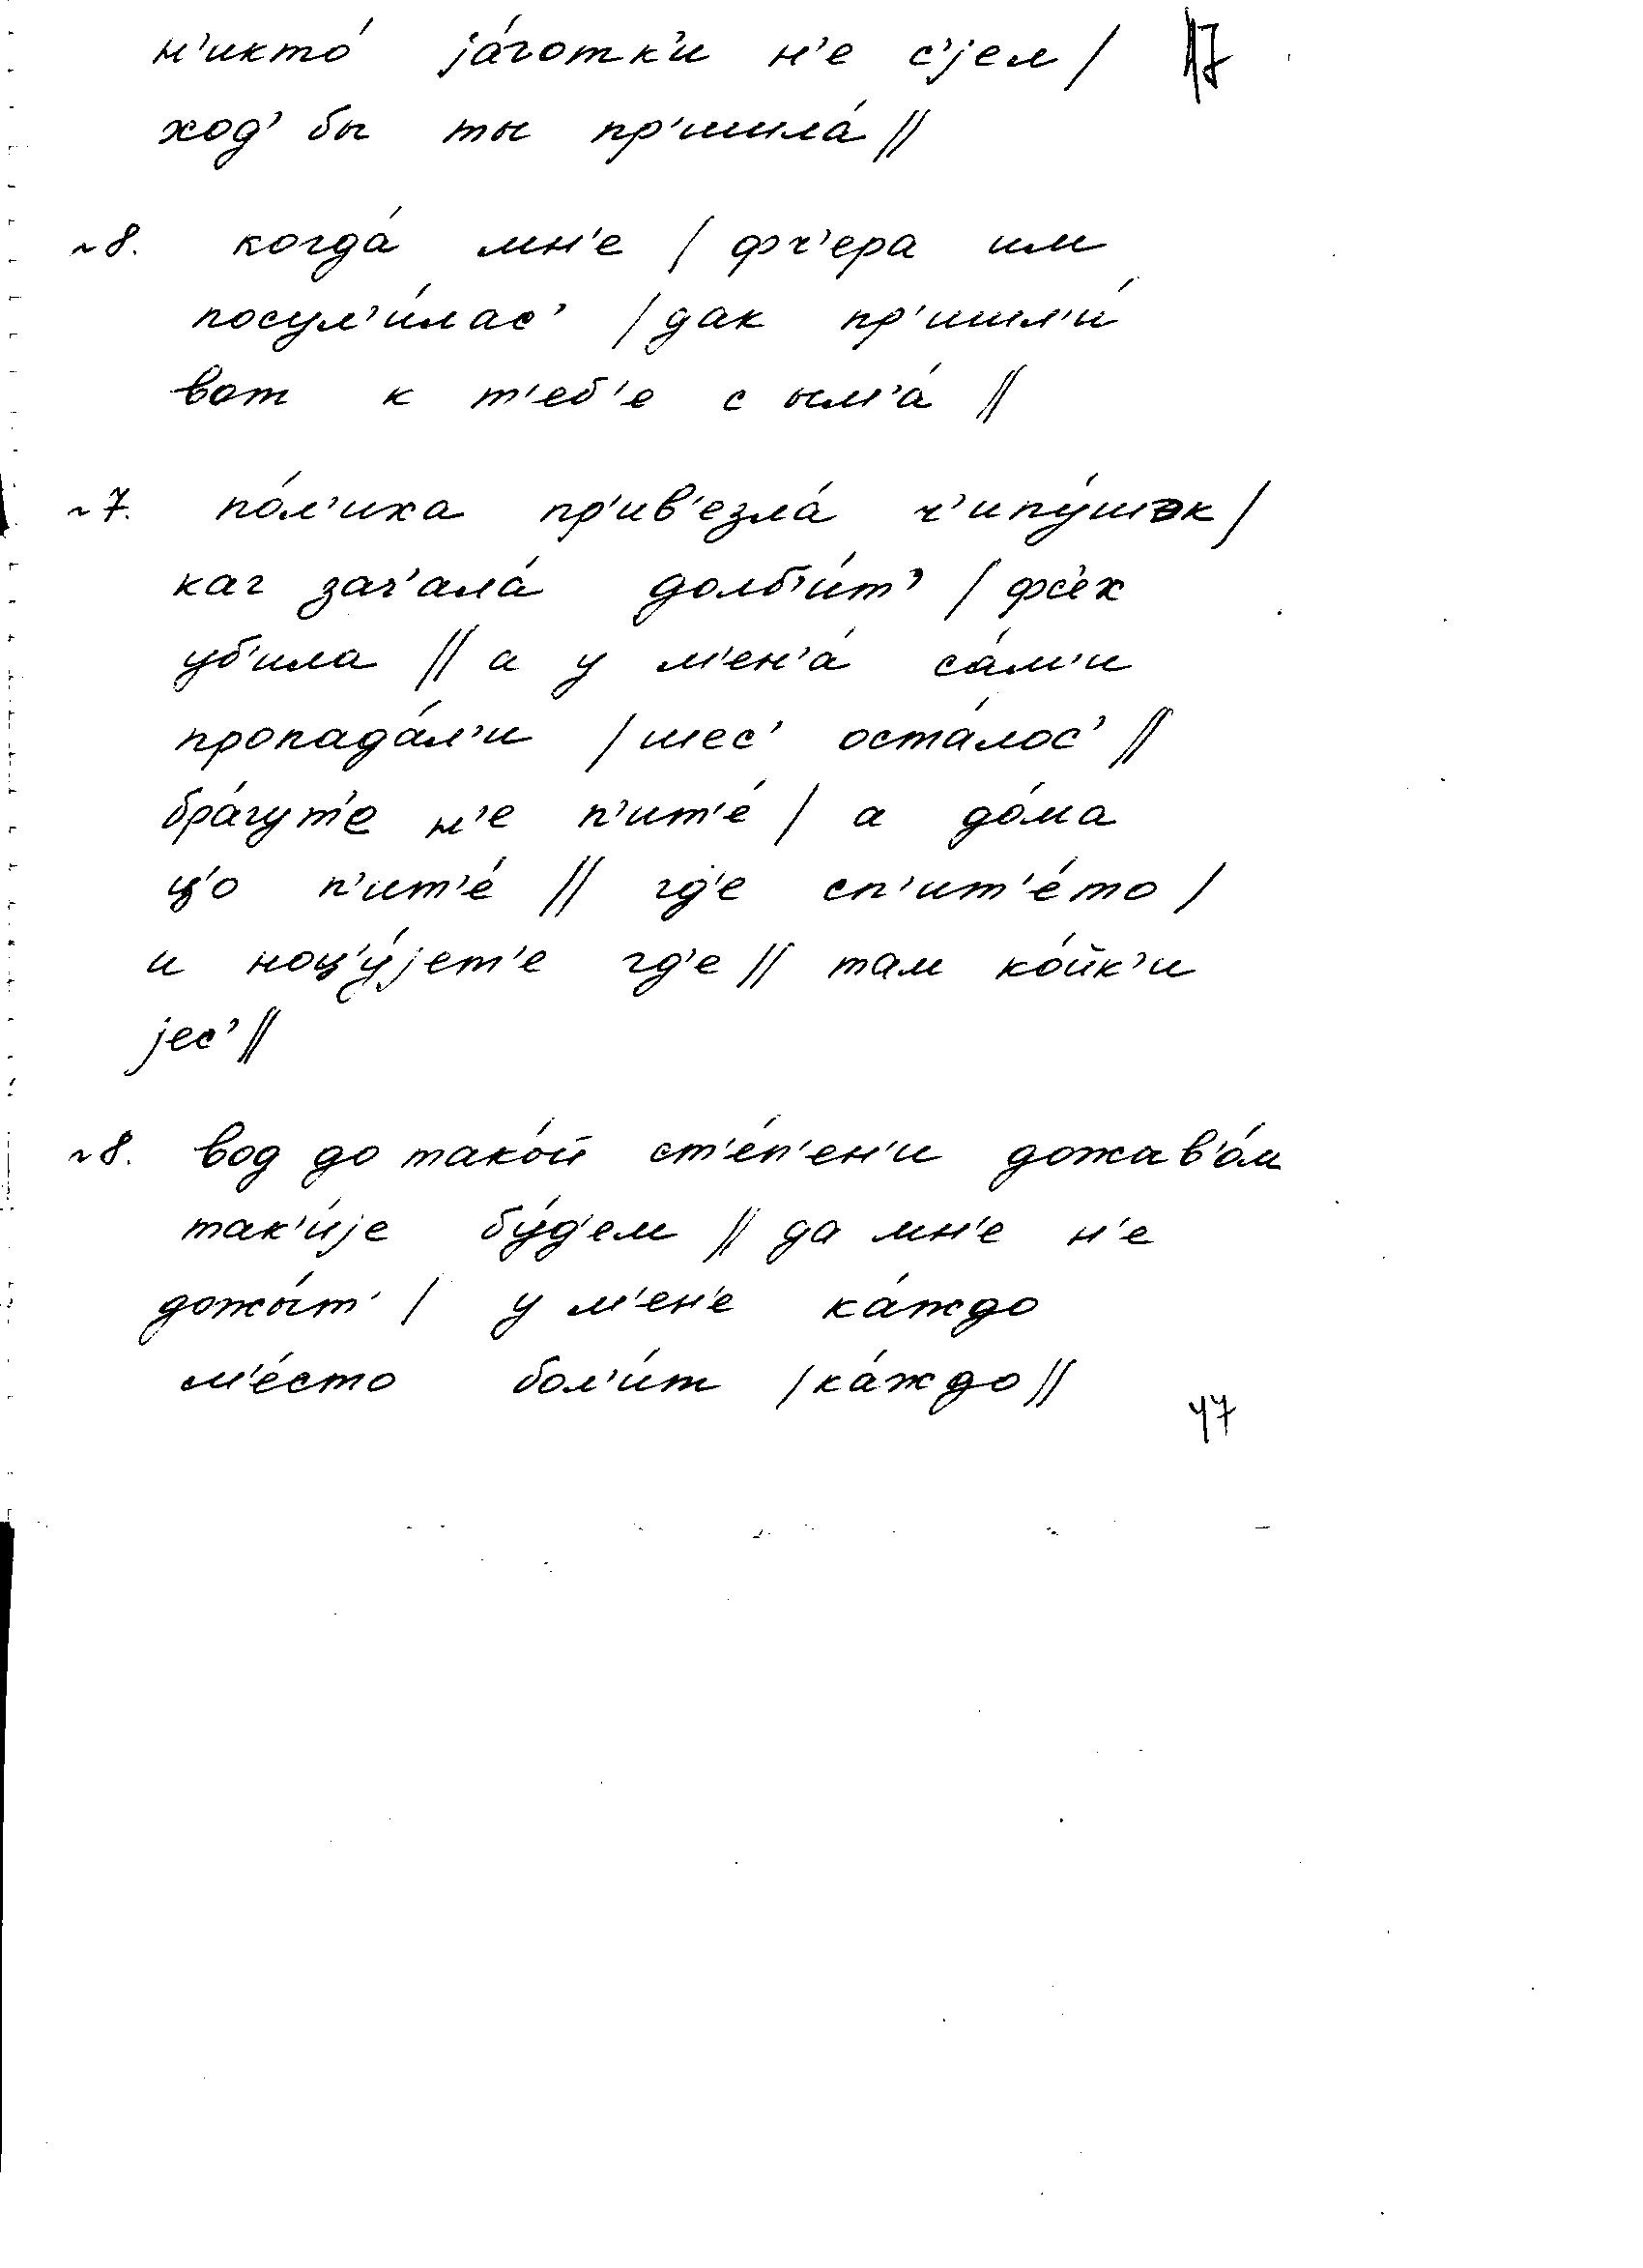 н'икто́ jа́готк'и н'е с'jем / 17
ход' бы ты пр'ишла́ //
~8. когда́ мн'е / фч'ера им
посул'и́лас' / дак пр'ишл'и́
вот к т'еб'е с ым'а́ //
~7. по́л'иха пр'ив'езла́ ч'ипу́шэк /
каг зач'ала́ долб'и́т' / фс'ех
уб'ила // а у м'ен'а́ са́м'и
пропада́л'и / шес' оста́лос' //
бра́гут'е н'е п'ит'е́ / а до́ма
ц'о п'ит'е́ // гд'е сп'ит'е́то /
и ноц'у́jет'е гд'е // там ко́йк'и
jес' //
~8. вод до тако́й ст'е́п'ен'и дожив'о́м
так'и́jе бу́д'ем // да мн'е н'е
дожы́т' / у м'ен'е ка́ждо
м'е́сто бол'и́т / ка́ждо //
47